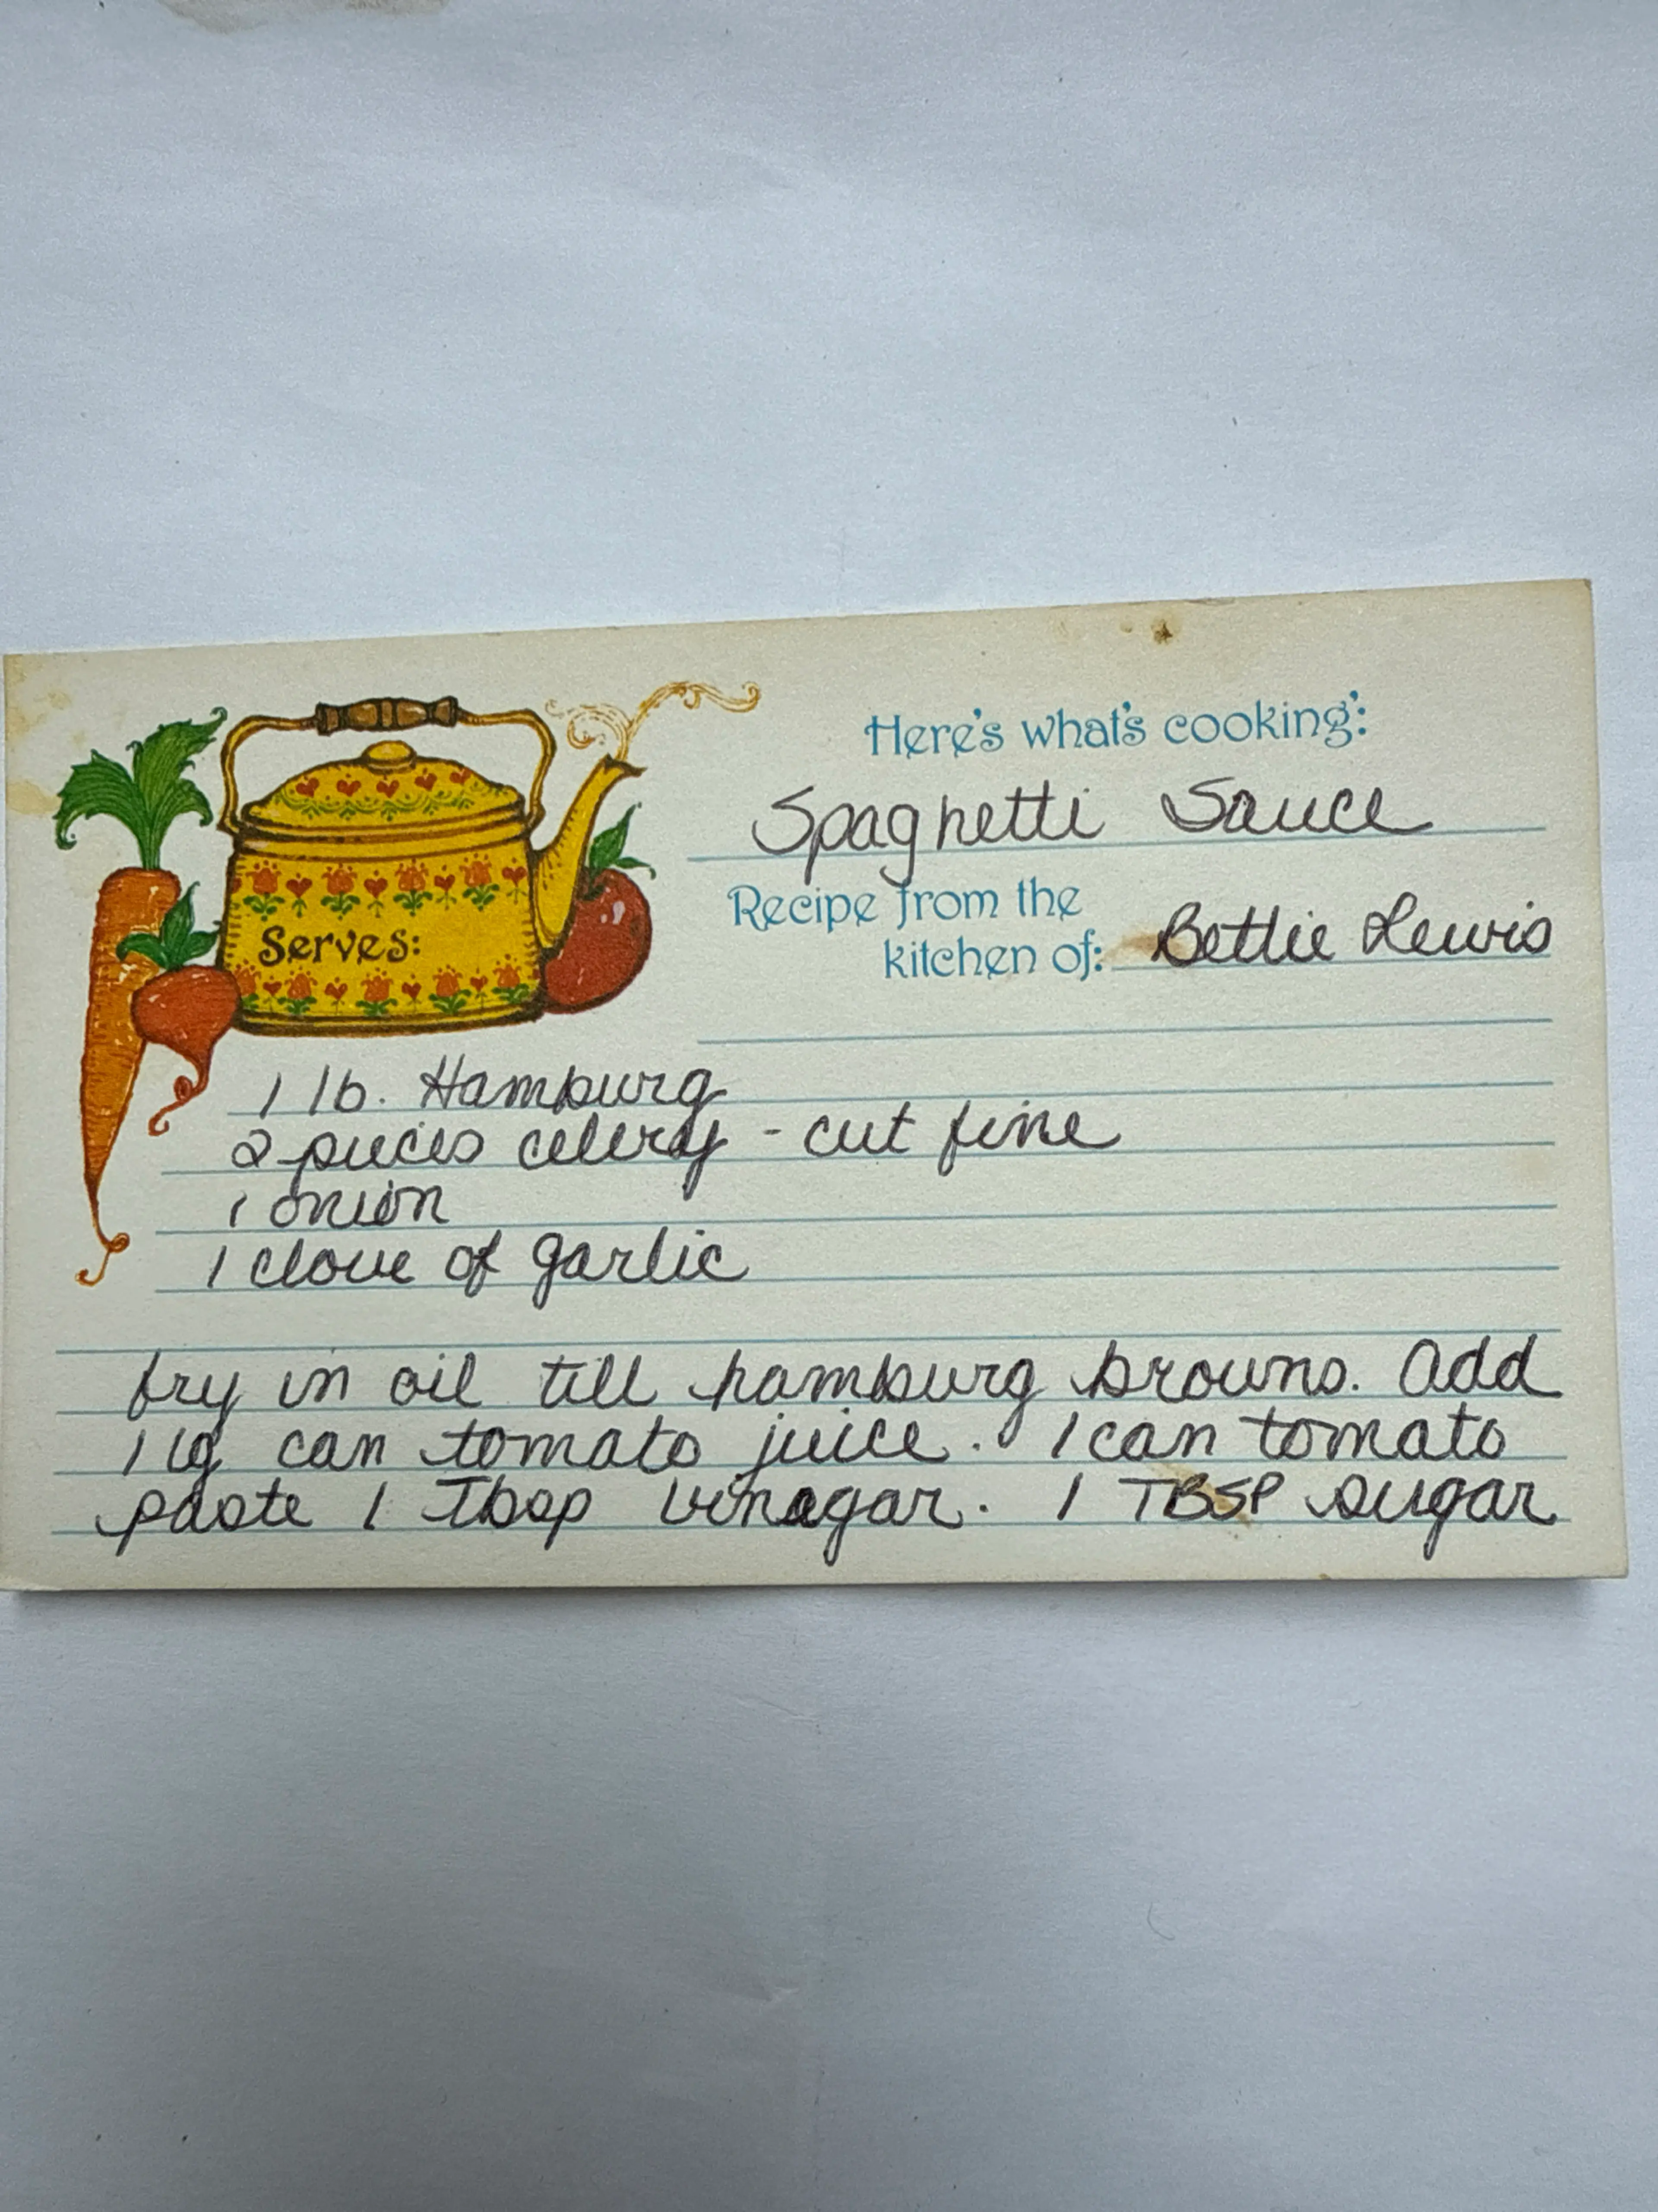 Here's what's cooking:
Spaghetti Sauce
Recipe from the
kitchen of: Bettie Lewis
Serves:
1 lb. Hamburg
2 pieces celery - cut fine
1 onion
1 clove of garlic
fry in oil till hamburg browns. Add
1 lg can tomato juice. 1 can tomato
paste 1 Tbsp vinagar. 1 TBSP sugar